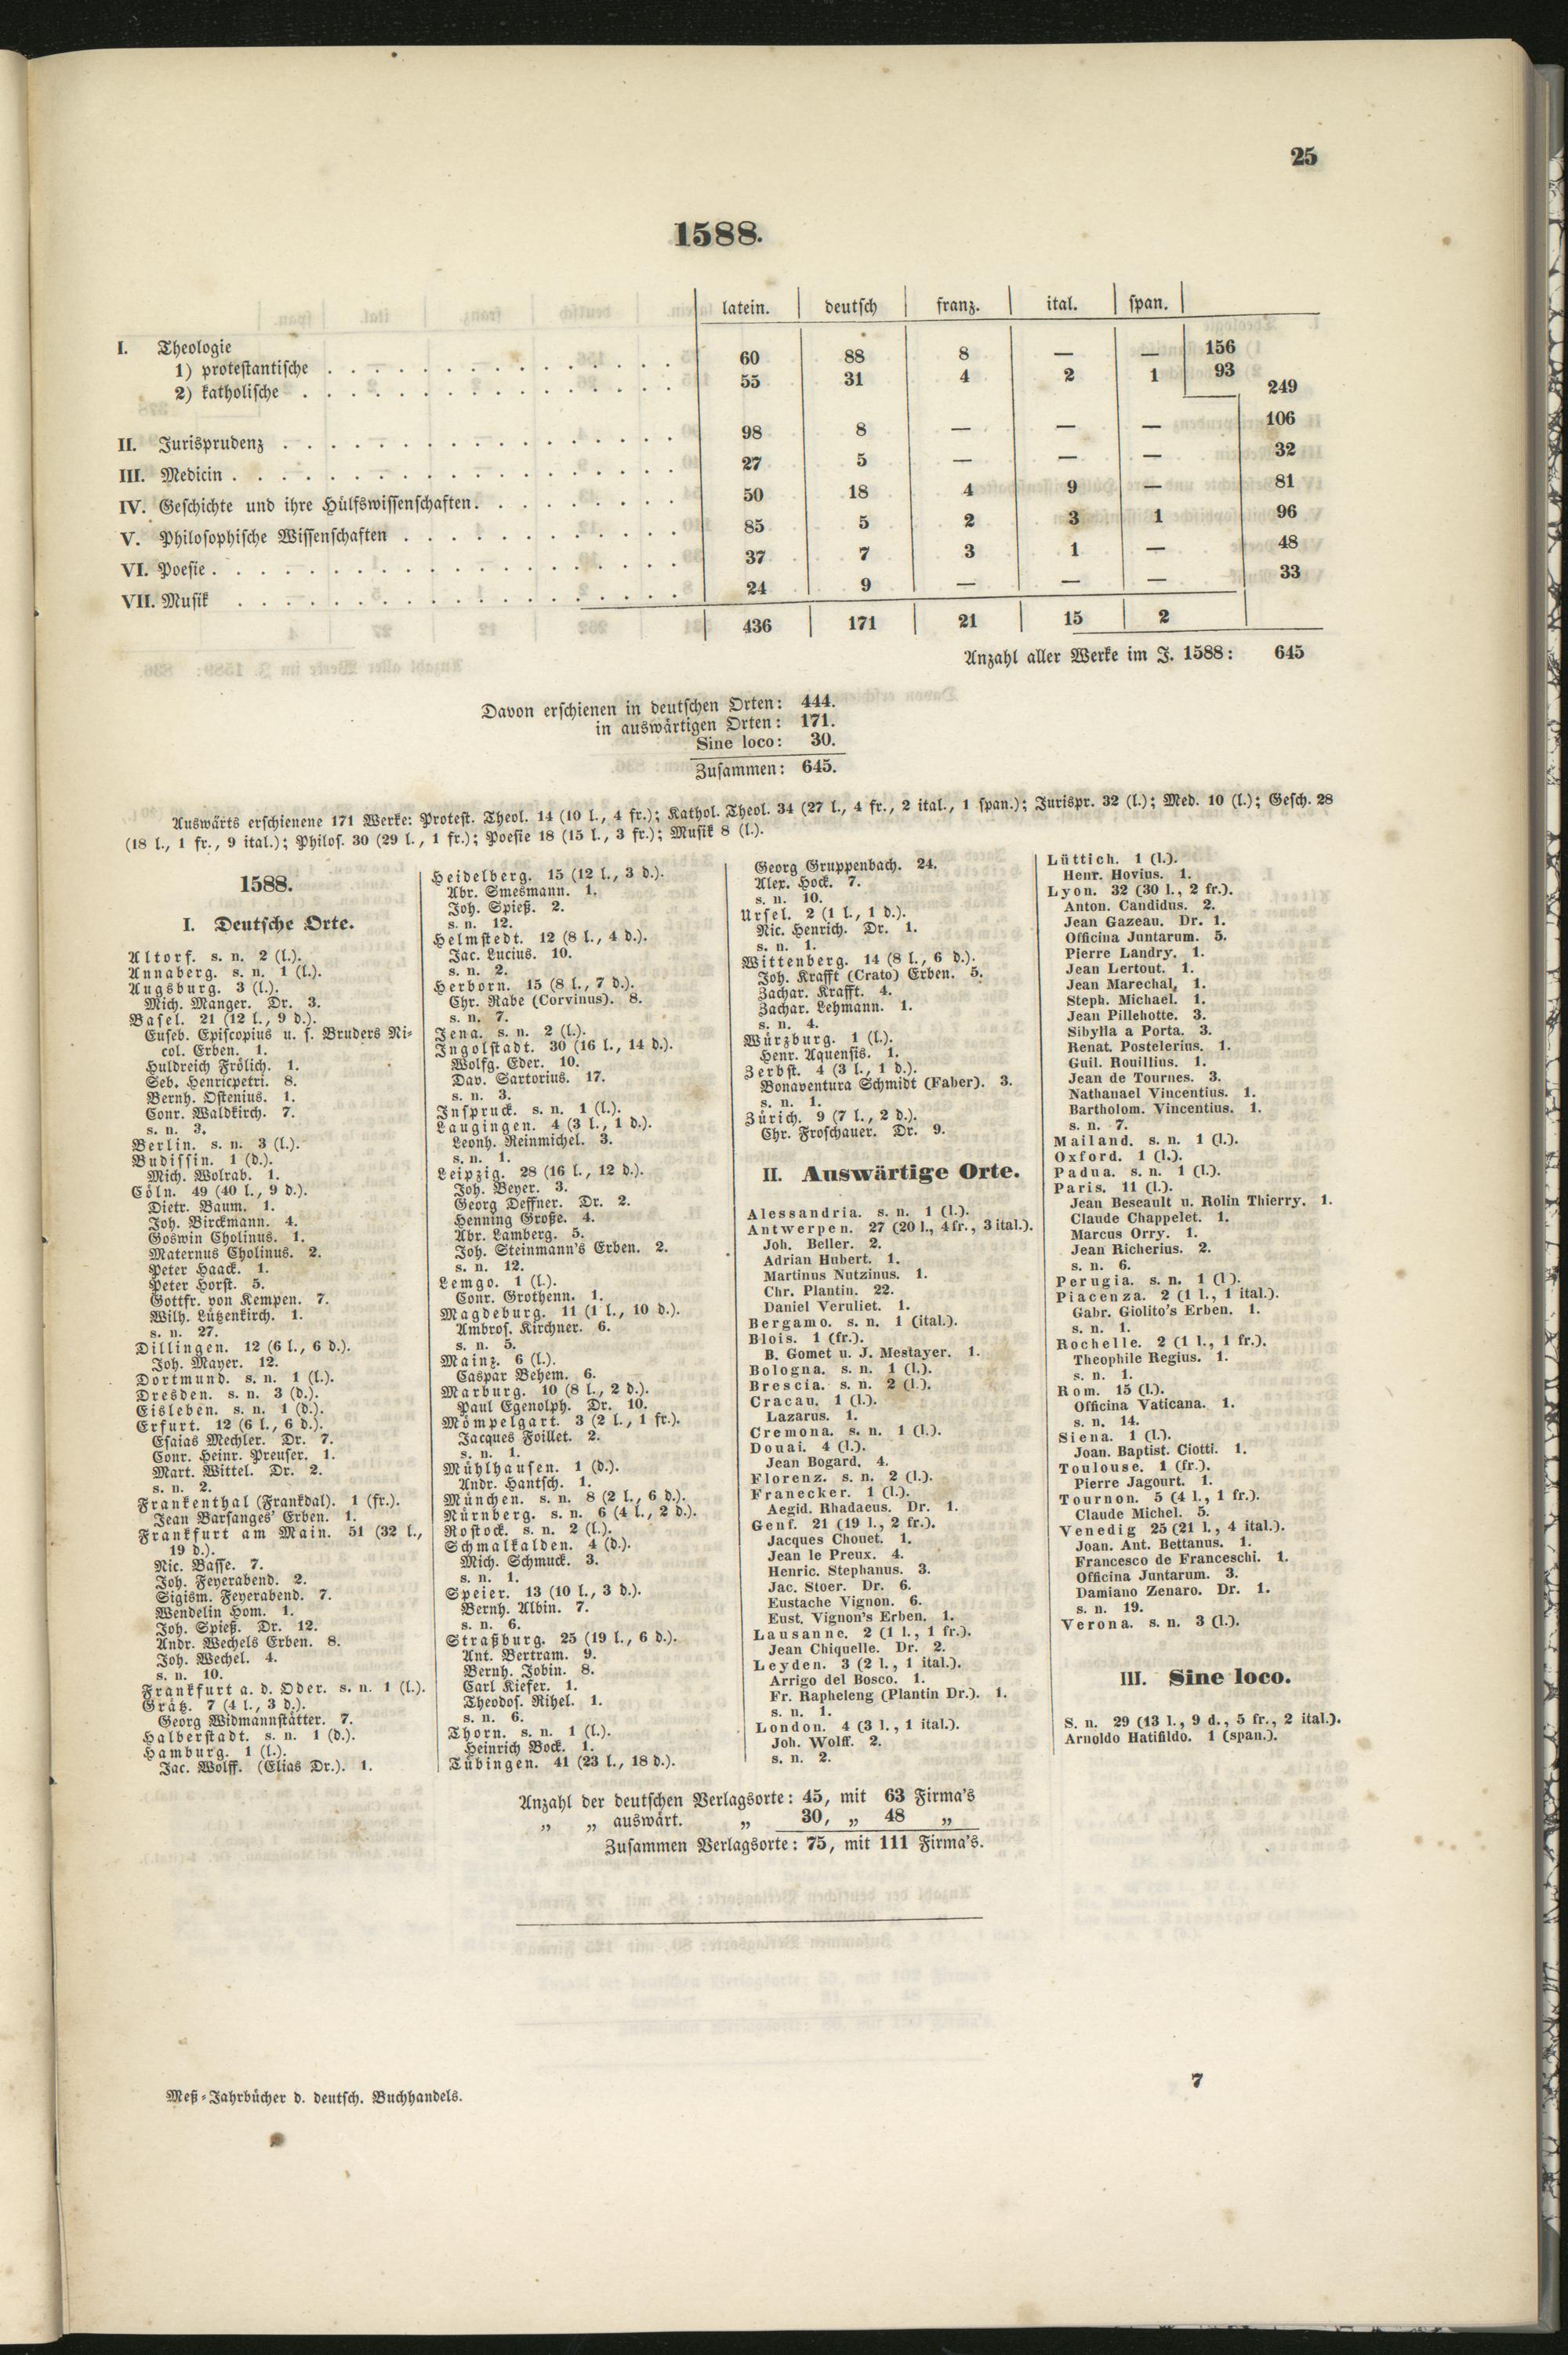 25
1588.
latein. deutsch franz. ital. span.
I. Theologie
1) protestantische . . . . . . . . . . . . . . . 60 88 8 — — 156
2) katholische . . . . . . . . . . . . . . . . 55 31 4 2 1 93
249
II. Jurisprudenz . . . . . . . . . . . . . . . . . 98 8 — — — 106
III. Medicin . . . . . . . . . . . . . . . . . . . 27 5 — — — 32
IV. Geschichte und ihre Hülfswissenschaften. . . . . . . . . 50 18 4 9 — 81
V. Philosophische Wissenschaften . . . . . . . . . . . . 85 5 2 3 1 96
VI. Poesie . . . . . . . . . . . . . . . . . . . . 37 7 3 1 — 48
VII. Musik . . . . . . . . . . . . . . . . . . . 24 9 — — — 33
436 171 21 15 2
Anzahl aller Werke im J. 1588: 645
Davon erschienen in deutschen Orten: 444.
in auswärtigen Orten: 171.
Sine loco: 30.
Zusammen: 645.
Auswärts erschienene 171 Werke: Protest. Theol. 14 (10 l., 4 fr.); Kathol. Theol. 34 (27 l., 4 fr., 2 ital., 1 span.); Jurispr. 32 (l.); Med. 10 (l.); Gesch. 28
(18 l., 1 fr., 9 ital.); Philos. 30 (29 l., 1 fr.); Poesie 18 (15 l., 3 fr.); Musik 8 (l.).
1588.
I. Deutsche Orte.
Altorf. s. n. 2 (l.).
Annaberg. s. n. 1 (l.).
Augsburg. 3 (l.).
Mich. Manger. Dr. 3.
Basel. 21 (12 l., 9 d.).
Euseb. Episcopius u. s. Bruders Ni-
col. Erben. 1.
Huldreich Frölich. 1.
Seb. Henricpetri. 8.
Bernh. Ostenius. 1.
Conr. Waldkirch. 7.
s. n. 3.
Berlin. s. n. 3 (l.).
Budissin. 1 (d.).
Mich. Wolrab. 1.
Cöln. 49 (40 l., 9 d.).
Dietr. Baum. 1.
Joh. Birckmann. 4.
Goswin Cholinus. 1.
Maternus Cholinus. 2.
Peter Haack. 1.
Peter Horst. 5.
Gottfr. von Kempen. 7.
Wilh. Lützenkirch. 1.
s. n. 27.
Dillingen. 12 (6 l., 6 d.).
Joh. Mayer. 12.
Dortmund. s. n. 1 (l.).
Dresden. s. n. 3 (d.).
Eisleben. s. n. 1 (d.).
Erfurt. 12 (6 l., 6 d.).
Esaias Mechler. Dr. 7.
Conr. Heinr. Preuser. 1.
Mart. Wittel. Dr. 2.
s. n. 2.
Frankenthal (Frankdal). 1 (fr.).
Jean Barsanges' Erben. 1.
Frankfurt am Main. 51 (32 l.,
19 d.).
Nic. Basse. 7.
Joh. Feyerabend. 2.
Sigism. Feyerabend. 7.
Wendelin Hom. 1.
Joh. Spieß. Dr. 12.
Andr. Wechels Erben. 8.
Joh. Wechel. 4.
s. n. 10.
Frankfurt a. d. Oder. s. n. 1 (l.).
Grätz. 7 (4 l., 3 d.).
Georg Widmannstätter. 7.
Halberstadt. s. n. 1 (d.).
Hamburg. 1 (l.).
Jac. Wolff. (Elias Dr.). 1.
Heidelberg. 15 (12 l., 3 d.).
Abr. Smesmann. 1.
Joh. Spieß. 2.
s. n. 12.
Helmstedt. 12 (8 l., 4 d.).
Jac. Lucius. 10.
s. n. 2.
Herborn. 15 (8 l., 7 d.).
Chr. Rabe (Corvinus). 8.
s. n. 7.
Jena. s. n. 2 (l.).
Ingolstadt. 30 (16 l., 14 d.).
Wolfg. Eder. 10.
Dav. Sartorius. 17.
s. n. 3.
Inspruck. s. n. 1 (l.).
Laugingen. 4 (3 l., 1 d.).
Leonh. Reinmichel. 3.
s. n. 1.
Leipzig. 28 (16 l., 12 d.).
Joh. Beyer. 3.
Georg Deffner. Dr. 2.
Henning Große. 4.
Abr. Lamberg. 5.
Joh. Steinmann's Erben. 2.
s. n. 12.
Lemgo. 1 (l.).
Conr. Grothenn. 1.
Magdeburg. 11 (1 l., 10 d.).
Ambros. Kirchner. 6.
s. n. 5.
Mainz. 6 (l.).
Caspar Behem. 6.
Marburg. 10 (8 l., 2 d.).
Paul Egenolph. Dr. 10.
Mömpelgart. 3 (2 l., 1 fr.).
Jacques Foillet. 2.
s. n. 1.
Mühlhausen. 1 (d.).
Andr. Hantsch. 1.
München. s. n. 8 (2 l., 6 d.).
Nürnberg. s. n. 6 (4 l., 2 d.).
Rostock. s. n. 2 (l.).
Schmalkalden. 4 (d.).
Mich. Schmuck. 3.
s. n. 1.
Speier. 13 (10 l., 3 d.).
Bernh. Albin. 7.
s. n. 6.
Straßburg. 25 (19 l., 6 d.).
Ant. Bertram. 9.
Bernh. Jobin. 8.
Carl Kiefer. 1.
Theodos. Rihel. 1.
s. n. 6.
Thorn. s. n. 1 (l.).
Heinrich Bock. 1.
Tübingen. 41 (23 l., 18 d.).
Georg Gruppenbach. 24.
Alex. Hock. 7.
s. n. 10.
Ursel. 2 (1 l., 1 d.).
Nic. Henrich. Dr. 1.
s. n. 1.
Wittenberg. 14 (8 l., 6 d.).
Joh. Krafft (Crato) Erben. 5.
Zachar. Krafft. 4.
Zachar. Lehmann. 1.
s. n. 4.
Würzburg. 1 (l.).
Henr. Aquensis. 1.
Zerbst. 4 (3 l., 1 d.).
Bonaventura Schmidt (Faber). 3.
s. n. 1.
Zürich. 9 (7 l., 2 d.).
Chr. Froschauer. Dr. 9.
II. Auswärtige Orte.
Alessandria. s. n. 1 (l.).
Antwerpen. 27 (20 l., 4 fr., 3 ital.).
Joh. Beller. 2.
Adrian Hubert. 1.
Martinus Nutzinus. 1.
Chr. Plantin. 22.
Daniel Veruliet. 1.
Bergamo. s. n. 1 (ital.).
Blois. 1 (fr.).
B. Gomet u. J. Mestayer. 1.
Bologna. s. n. 1 (l.).
Brescia. s. n. 2 (l.).
Cracau. 1 (l.).
Lazarus. 1.
Cremona. s. n. 1 (l.).
Douai. 4 (l.).
Jean Bogard. 4.
Florenz. s. n. 2 (l.).
Franecker. 1 (l.).
Aegid. Rhadaeus. Dr. 1.
Genf. 21 (19 l., 2 fr.).
Jacques Chouet. 1.
Jean le Preux. 4.
Henric. Stephanus. 3.
Jac. Stoer. Dr. 6.
Eustache Vignon. 6.
Eust. Vignon's Erben. 1.
Lausanne. 2 (1 l., 1 fr.).
Jean Chiquelle. Dr. 2.
Leyden. 3 (2 l., 1 ital.).
Arrigo del Bosco. 1.
Fr. Rapheleng (Plantin Dr.). 1.
s. n. 1.
London. 4 (3 l., 1 ital.).
Joh. Wolff. 2.
s. n. 2.
Lüttich. 1 (l.).
Henr. Hovius. 1.
Lyon. 32 (30 l., 2 fr.).
Anton. Candidus. 2.
Jean Gazeau. Dr. 1.
Officina Juntarum. 5.
Pierre Landry. 1.
Jean Lertout. 1.
Jean Marechal. 1.
Steph. Michael. 1.
Jean Pillehotte. 3.
Sibylla a Porta. 3.
Renat. Postelerius. 1.
Guil. Rouillius. 1.
Jean de Tournes. 3.
Nathanael Vincentius. 1.
Bartholom. Vincentius. 1.
s. n. 7.
Mailand. s. n. 1 (l.).
Oxford. 1 (l.).
Padua. s. n. 1 (l.).
Paris. 11 (l.).
Jean Beseault u. Rolin Thierry. 1.
Claude Chappelet. 1.
Marcus Orry. 1.
Jean Richerius. 2.
s. n. 6.
Perugia. s. n. 1 (l).
Piacenza. 2 (1 l., 1 ital.).
Gabr. Giolito's Erben. 1.
s. n. 1.
Rochelle. 2 (1 l., 1 fr.).
Theophile Regius. 1.
s. n. 1.
Rom. 15 (l.).
Officina Vaticana. 1.
s. n. 14.
Siena. 1 (l.).
Joan. Baptist. Ciotti. 1.
Toulouse. 1 (fr.).
Pierre Jagourt. 1.
Tournon. 5 (4 l., 1 fr.).
Claude Michel. 5.
Venedig 25 (21 l., 4 ital.).
Joan. Ant. Bettanus. 1.
Francesco de Franceschi. 1.
Officina Juntarum. 3.
Damiano Zenaro. Dr. 1.
s. n. 19.
Verona. s. n. 3 (l.).
III. Sine loco.
S. n. 29 (13 l., 9 d., 5 fr., 2 ital.).
Arnoldo Hatifildo. 1 (span.).
Anzahl der deutschen Verlagsorte: 45, mit 63 Firma's
„ „ auswärt. „ 30, „ 48 „
Zusammen Verlagsorte: 75, mit 111 Firma's.
Meß-Jahrbücher d. deutsch. Buchhandels.
7